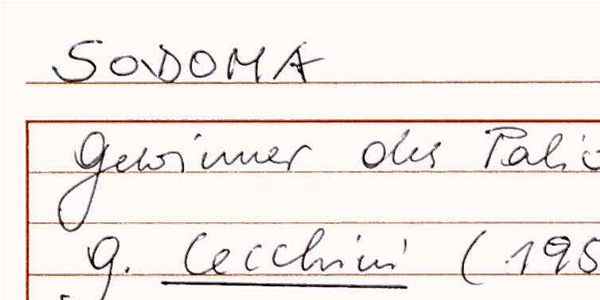 SODOMA
Gewinner des Palio
G. Cecchini (195